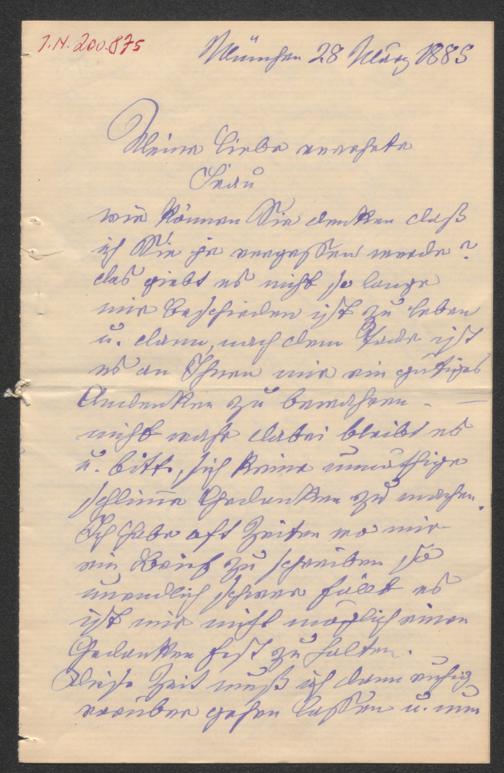 J.N. 200.875
München 28 März 1885
Meine liebe verehrte
Frau
wie können Sie denken daß
ich Sie je vergessen werde?
das giebt es nicht so lange
mir beschieden ist zu leben
u. dann, nach dem Tode ist
es an Ihnen mir ein gütiges
Andenken zu bewahren –
nicht wahr dabei bleibt es
u. bitte, sich keine unnöthige
schlimme Gedanken zu machen.
Ich habe oft Zeiten wo mir
ein Brief zu schreiben so
unendlich schwer fällt es
ist mir nicht möglich einen
Gedanken fest zu halten.
Diese Zeit muß ich dann ruhig
vorüber gehen lassen u. nun